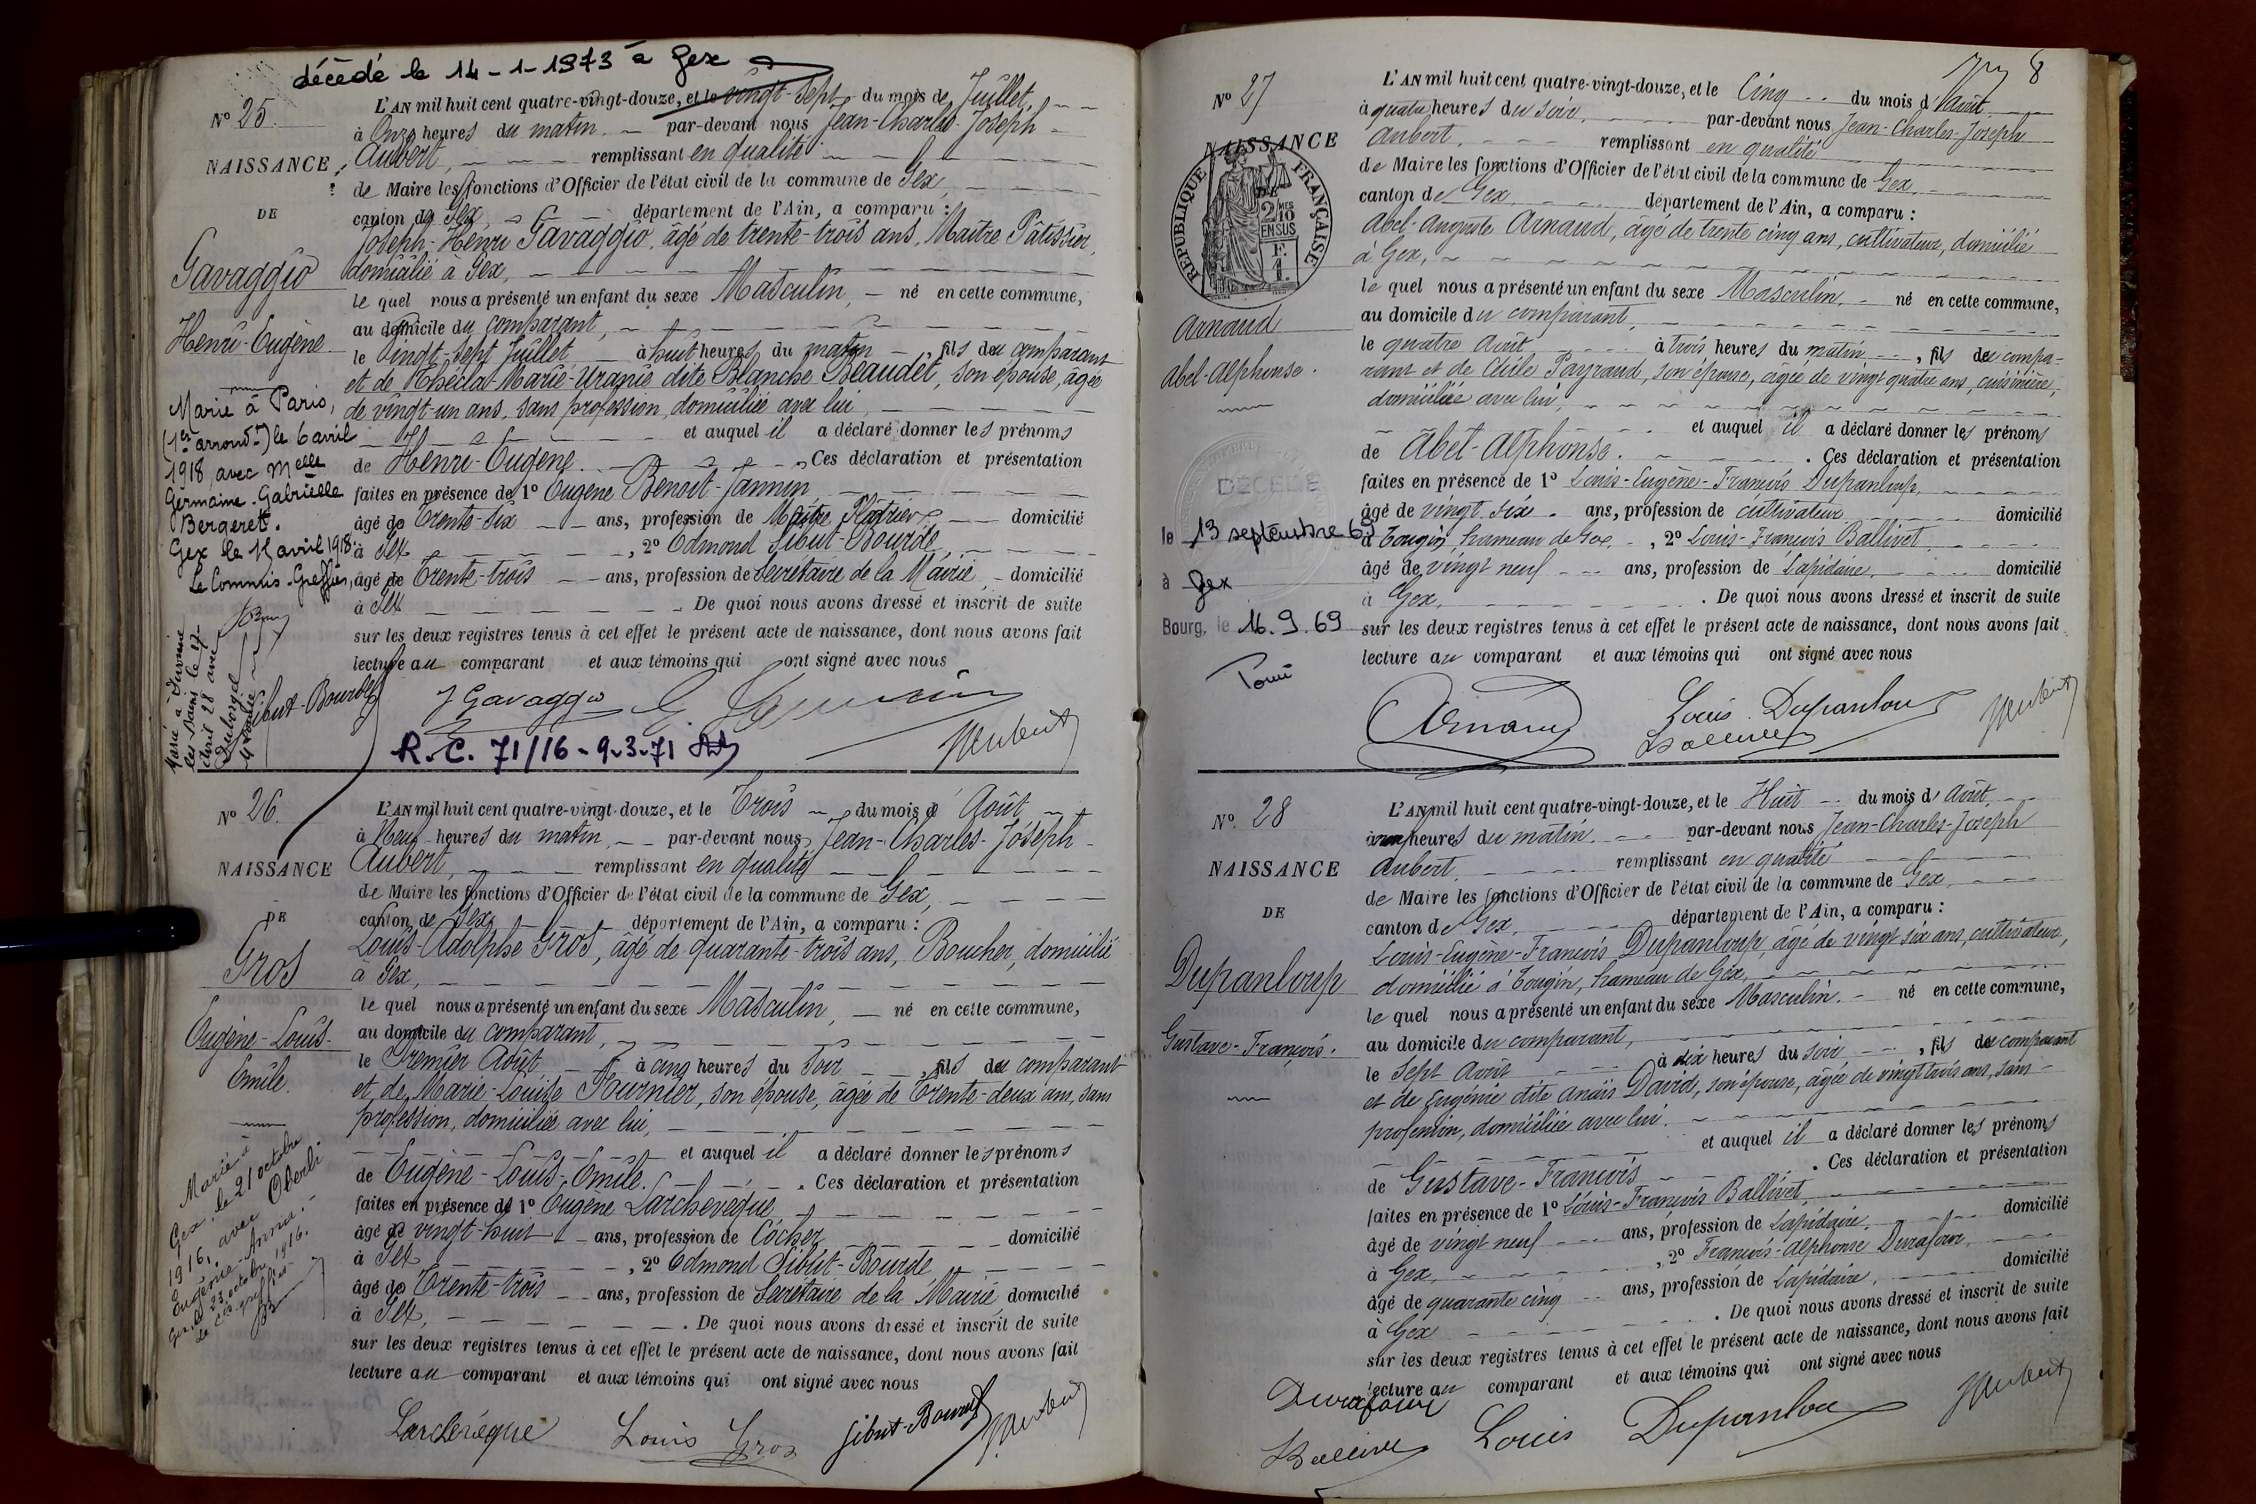 décédé le 14-1-1973 à Gex
N° 25.
NAISSANCE
DE
Gavaggio
Henri-Eugène
Marié à Paris,
(1er arrondt) le 6 avril
1918, avec Melle
Germaine-Gabrielle
Bergeret.
Gex le 11 avril 1918.
Le Commis-Greffier,
Marié à Divonne
les Bains le 17
avril 28 avec
L'AN mil huit cent quatre-vingt-douze, et le vingt-sept du mois de Juillet,
à Onze heures du matin par-devant nous Jean-Charles-Joseph
Aubert, remplissant en qualité
de Maire les fonctions d'Officier de l'état civil de la commune de Gex,
canton de Gex département de l'Ain, a comparu :
Joseph-Henri Gavaggio, âgé de trente-trois ans, Maître Pâtissier,
domicilié à Gex,
le quel nous a présenté un enfant du sexe Masculin, né en cette commune,
au domicile du comparant,
le Vingt-sept Juillet à huit heures du matin, fils du comparant
et de Thécla-Marie-Uranie dite Blanche Beaudet, son épouse, âgée
de vingt-un ans, sans profession, domiciliée avec lui,
et auquel il a déclaré donner les prénoms
de Henri-Eugène. Ces déclaration et présentation
faites en présence de 1° Eugène Benoit-Jannin
âgé de Trente-six ans, profession de Maître Plâtrier, domicilié
à Gex, 2° Edmond Sibut-Bourde
âgé de Trente-trois ans, profession de Secrétaire de la Mairie, domicilié
à Gex. De quoi nous avons dressé et inscrit de suite
sur les deux registres tenus à cet effet le présent acte de naissance, dont nous avons fait
lecture au comparant et aux témoins qui ont signé avec nous
Sibut-Bourde J Gavaggio E. Jannin
JAubert
R.C. 71/16-9-3-71
N° 26.
NAISSANCE
DE
Gros
Eugène-Louis-
Emile.
Marié à
Gex, le 21 octobre
1916, avec Oberli
Eugénie-Annie.
Gex, le 23 octobre 1916.
L'AN mil huit cent quatre-vingt-douze, et le Trois du mois d'Août
à Neuf heures du matin, par-devant nous Jean-Charles-Joseph
Aubert, remplissant en qualité
de Maire les fonctions d'Officier de l'état civil de la commune de Gex,
canton de Gex, département de l'Ain, a comparu :
Louis-Adolphe Gros, âgé de quarante-trois ans, Boucher, domicilié
à Gex,
le quel nous a présenté un enfant du sexe Masculin, né en cette commune,
au domicile du comparant,
le Premier Août à cinq heures du soir, fils du comparant
et de Marie-Louise Fournier, son épouse, âgée de Trente-deux ans, sans
profession, domiciliée avec lui,
et auquel il a déclaré donner les prénoms
de Eugène-Louis-Emile. Ces déclaration et présentation
faites en présence de 1° Eugène Larchevêque
âgé de vingt-huit ans, profession de Cocher domicilié
à Gex, 2° Edmond Sibut-Bourde
âgé de Trente-trois ans, profession de Secrétaire de la Mairie, domicilié
à Gex, De quoi nous avons dressé et inscrit de suite
sur les deux registres tenus à cet effet le présent acte de naissance, dont nous avons fait
lecture au comparant et aux témoins qui ont signé avec nous
Larchevêque Louis Gros Sibut-Bourde JAubert
8
N° 27
NAISSANCE
DE
RÉPUBLIQUE FRANÇAISE
2/10 MES
EN SUS
F.
1.
Arnaud
Abel-Alphonse.
DÉCÉDÉ
le 13 septembre 69
à Gex
Bourg, le 16.9.69
L'AN mil huit cent quatre-vingt-douze, et le Cinq du mois d'Août
à quatre heures du soir, par-devant nous Jean-Charles-Joseph
Aubert, remplissant en qualité
de Maire les fonctions d'Officier de l'état civil de la commune de Gex,
canton de Gex, département de l'Ain, a comparu :
Abel-Auguste Arnaud, âgé de trente cinq ans, cultivateur, domicilié
à Gex,
le quel nous a présenté un enfant du sexe Masculin, né en cette commune,
au domicile du comparant,
le quatre Août à trois heures du matin, fils du compa-
rant et de Cécile Payraud, son épouse, âgée de vingt quatre ans, cuisinière,
domiciliée avec lui,
et auquel il a déclaré donner les prénoms
de Abel-Alphonse. Ces déclaration et présentation
faites en présence de 1° Louis-Eugène-François Dupanloup,
âgé de vingt six ans, profession de cultivateur domicilié
à Tougin, hameau de Gex, 2° Louis-François Ballivet
âgé de vingt neuf ans, profession de Lapidaire, domicilié
à Gex, De quoi nous avons dressé et inscrit de suite
sur les deux registres tenus à cet effet le présent acte de naissance, dont nous avons fait
lecture au comparant et aux témoins qui ont signé avec nous
Arnaud Louis Dupanlou JAubert
Ballivet
N° 28
NAISSANCE
DE
Dupanloup
Gustave-François.
L'AN mil huit cent quatre-vingt-douze, et le Huit du mois d'Août
à onze heures du matin par-devant nous Jean-Charles-Joseph
Aubert, remplissant en qualité
de Maire les fonctions d'Officier de l'état civil de la commune de Gex,
canton de Gex, département de l'Ain, a comparu :
Louis-Eugène-François Dupanloup, âgé de vingt six ans, cultivateur,
domicilié à Tougin, hameau de Gex,
le quel nous a présenté un enfant du sexe Masculin, né en cette commune,
au domicile du comparant,
le sept Août à dix heures du soir, fils du comparant
et de Eugénie dite Anaïs David, son épouse, âgée de vingt trois ans, sans
profession, domiciliée avec lui.
et auquel il a déclaré donner les prénoms
de Gustave-François. Ces déclaration et présentation
faites en présence de 1° Louis-François Ballivet,
âgé de vingt neuf ans, profession de Lapidaire, domicilié
à Gex, 2° François-Alphonse Durafour,
âgé de quarante cinq ans, profession de Lapidaire, domicilié
à Gex. De quoi nous avons dressé et inscrit de suite
sur les deux registres tenus à cet effet le présent acte de naissance, dont nous avons fait
lecture au comparant et aux témoins qui ont signé avec nous
Durafour
Ballivet Louis Dupanlou JAubert